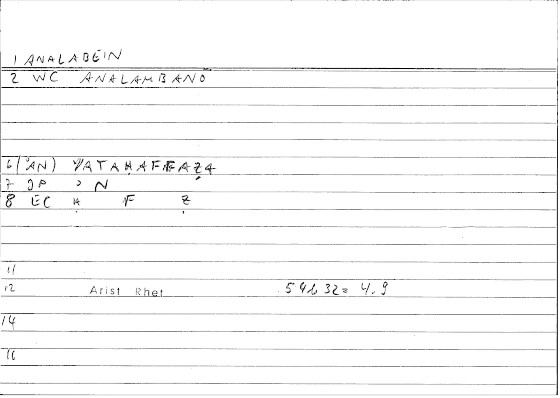 1 ANALABEIN
2 WC ANALAMBANO
6 (AN)
7 OP N
8 EC H F Z
11
12 Arist Rhet 54b32= 4.9
14
16